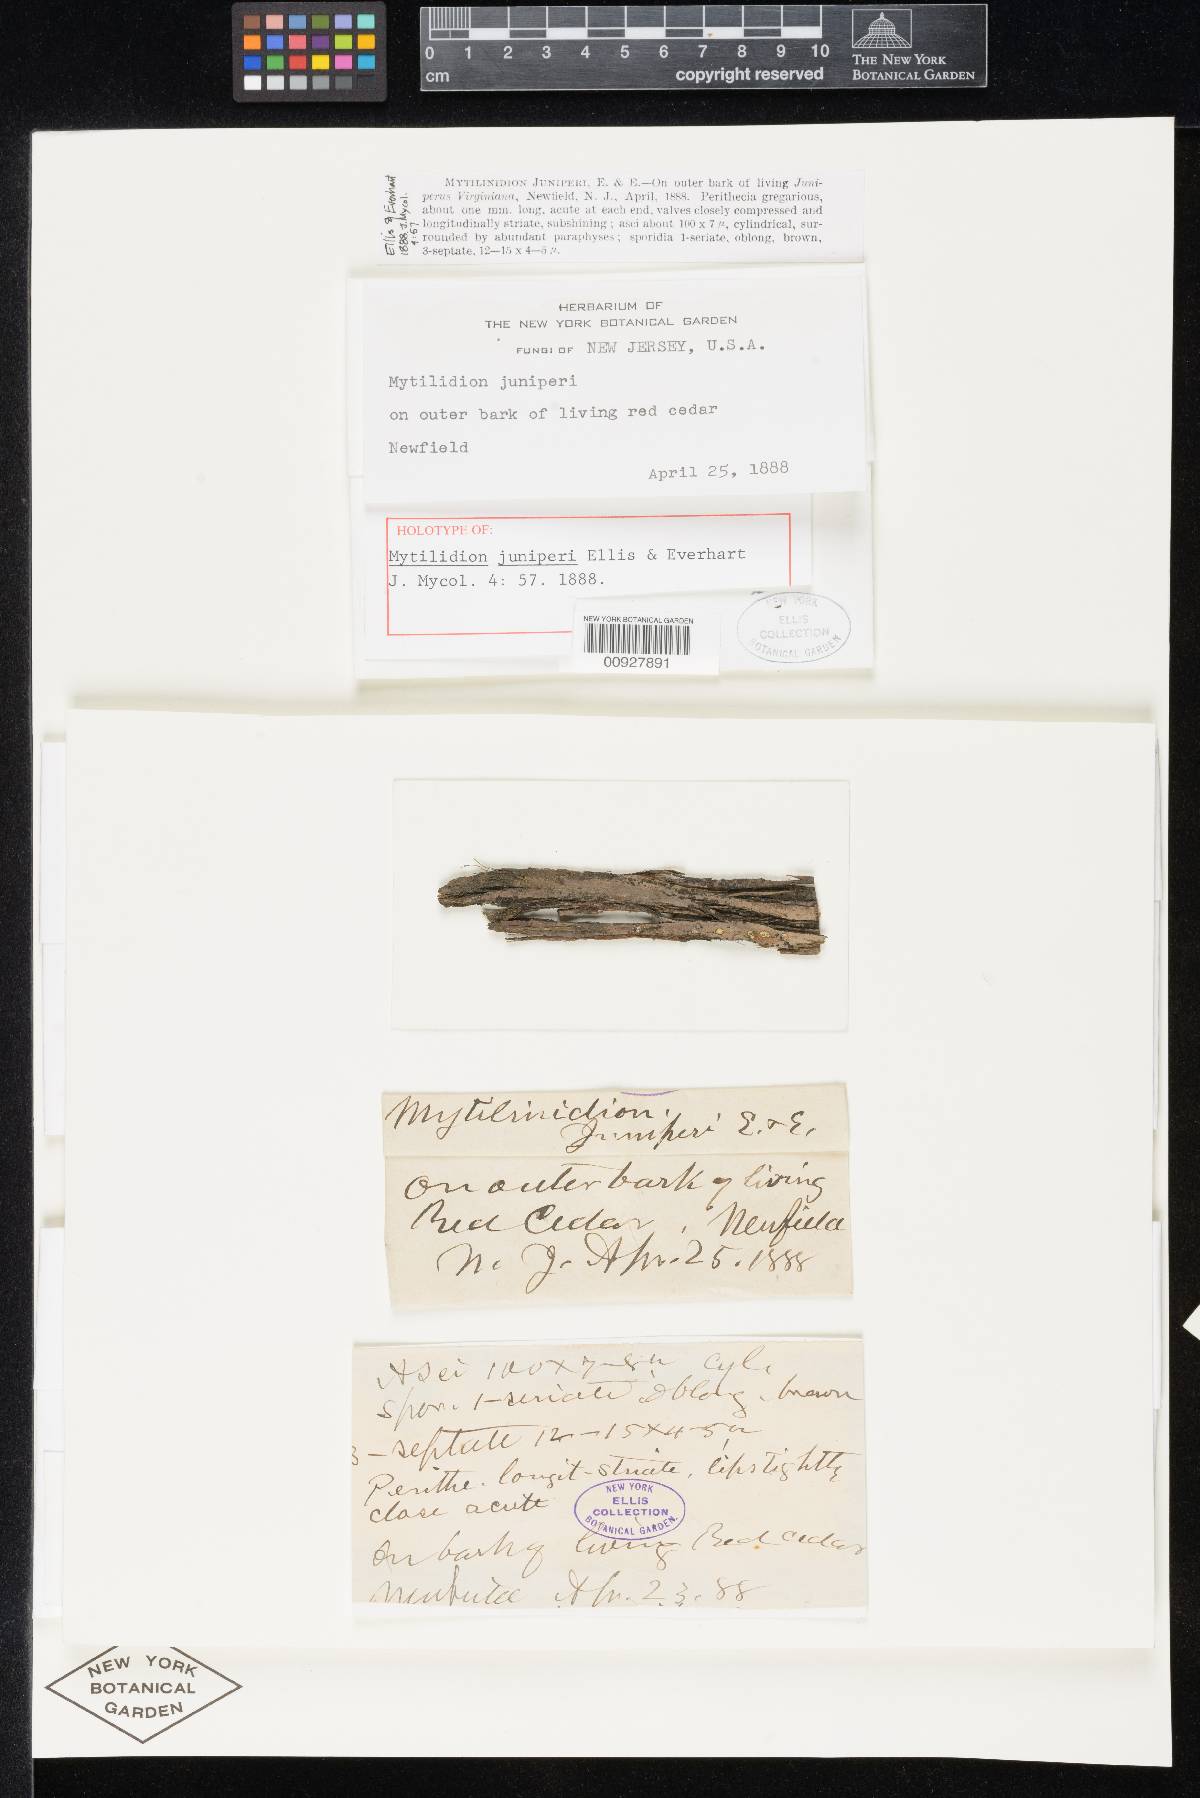 0 1 2 3 4 5 6 7 8 9 10
cm
copyright reserved
THE NEW YORK
BOTANICAL GARDEN
Ellis & Everhart
1888. J. Mycol.
4:57
MYTILINIDION JUNIPERI, E. & E.—On outer bark of living Juni-
perus Virginiana, Newfield, N. J., April, 1888. Perithecia gregarious,
about one mm. long, acute at each end, valves closely compressed and
longitudinally striate, subshining; asci about 100 x 7 µ, cylindrical, sur-
rounded by abundant paraphyses; sporidia 1-seriate, oblong, brown,
3-septate, 12—15 x 4—5 µ.
HERBARIUM OF
THE NEW YORK BOTANICAL GARDEN
FUNGI OF NEW JERSEY, U.S.A.
Mytilidion juniperi
on outer bark of living red cedar
Newfield
April 25, 1888
HOLOTYPE OF:
Mytilidion juniperi Ellis & Everhart
J. Mycol. 4: 57. 1888.
NEW YORK BOTANICAL GARDEN
00927891
NEW YORK
ELLIS
COLLECTION
BOTANICAL GARDEN
Mytilinidion
Juniperi E. & E.
On outer bark of living
Red Cedar, Newfield
N. J. Apr. 25. 1888
Asci 100 x 7-8µ cyl.
spor. 1-seriate oblong, brown
3-septate 12-15 x 4-5µ
Perithe. longit-striate, lips tightly
close acute
NEW YORK
ELLIS
COLLECTION
BOTANICAL GARDEN.
On bark of living Red cedar
Newfield Apr. 23. 88
NEW YORK
BOTANICAL
GARDEN